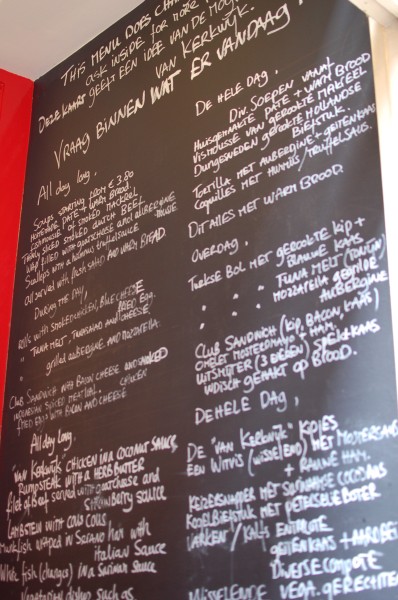 THIS MENU DOES
ask inside for more
DEZE KAART GEEFT EEN IDEE VAN DE
VAN KERKWIJK.
VRAAG BINNEN WAT ER VANDAAG!
All day long,
Soups starting from € 3.80
HOMEMADE PATE + WARM BROOD
FISHMOUSSE OF SMOKED MACKREL
THINLY SLICED SMOKED DUTCH BEEF
WRAP FILLED WITH GOATSCHEESE AND AUBERGINE
Scallops with a hummus truffle sauce
All served with fresh salad AND WARM BREAD.
DURING THE DAY,
Rolls with SMOKED CHICKEN, BLUE CHEESE
" TUNA MELT, TUNASALAD AND CHEESE,
" grilled aubergine, AND MOZZARELLA.
Club SANDWICH WITH BACON CHEESE AND SMOKED CHICKEN
INDONESIAN SPICED MEATBALL.
FRIED EGG WITH BACON AND CHEESE
All day long.
"VAN KERKWIJK" CHICKEN IN A COCONUT SAUCE,
RUMPSTEAK WITH A HERB BUTTER
filet of beef served with goatscheese and
strawberry sauce
LAMBSTEW WITH COUS COUS
Monkfish wrapped in SERANO Ham with
italian Sauce
White fish (changes) in a Surinam Sauce
Vegetarian dishes such as
DE HELE DAG,
Div. SOEPEN VANAF
HUISGEMAAKTE PATE + WARM BROOD
VISMOUSSE VAN GEROOKTE MAKREEL
DUNGESNEDEN GEROOKTE HOLLANDSE
BIEFSTUK.
TORTILLA MET AUBERGINE + GEITENKAAS
COQUILLES MET HUMMUS/TRUFFELSAUS.
DIT ALLES MET WARM BROOD.
OVERDAG,
TURKSE BOL MET GEROOKTE KIP +
BLAUWE KAAS
" " " TUNA MELT (TONIJN)
" " " MOZZARELLA GEGRILDE
AUBERGINE
CLUB SANDWICH (kip, BACON, KAAS)
OMELET MOSTERDMAYO + HAM.
UITSMIJTER (3 EIEREN) SPEK+KAAS
INDISCH GEHAKT OP BROOD.
DE HELE DAG,
DE "VAN KERKWIJK" KIPJES
EEN WITVIS (WISSELEND) MET MOSTERSAUS
+ RAUWE HAM.
KEIZERSNAPPER MET SURINAAMSE COCOSAUS
KOGELBIEFSTUK MET PETERSELIE BOTER
VARKEN / KALFS ENTRECOTE
GEITENKAAS + AARDBEI
DIVERSE COMPOTE
WISSELENDE VEGA. GERECHTEN